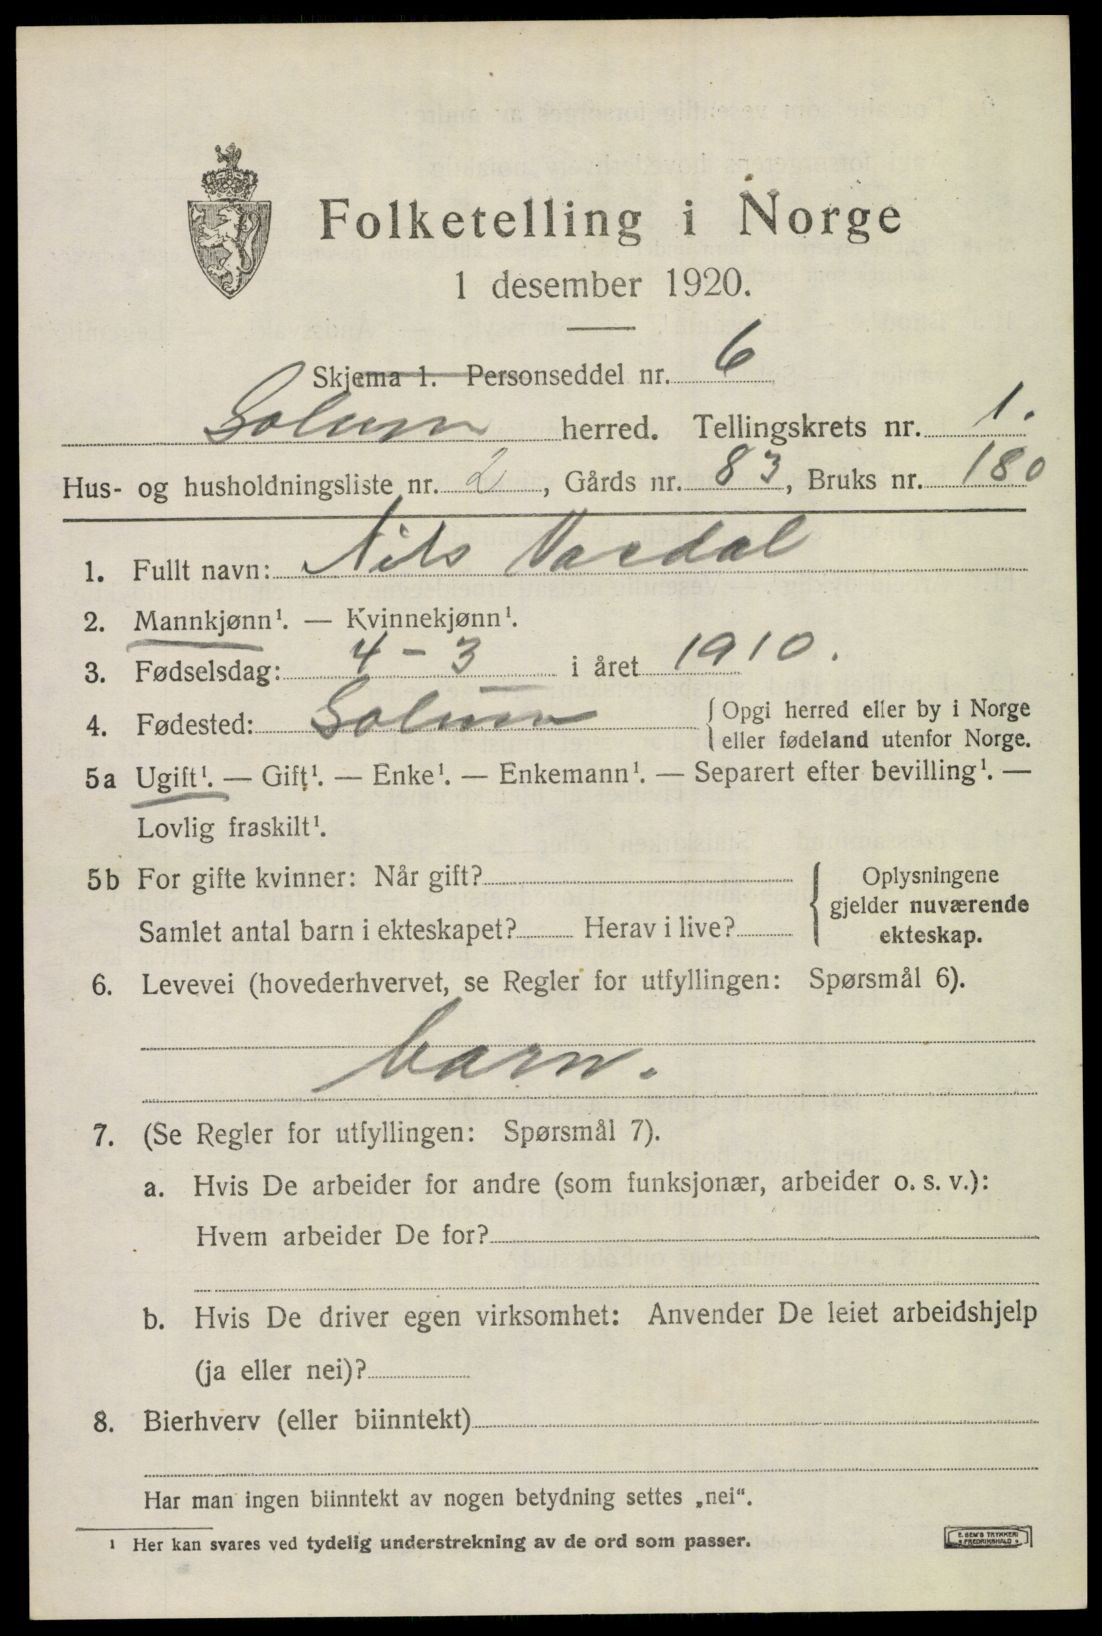 Folketelling i Norge
1 desember 1920.
Skjema 1. Personseddel nr. 6
Solum herred. Tellingskrets nr. 1.
Hus- og husholdningsliste nr. 2, Gårds nr. 83, Bruks nr. 180
1. Fullt navn: Nils Vardal
2. Mannkjønn¹. — Kvinnekjønn¹.
3. Fødselsdag: 4 - 3 i året 1910.
4. Fødested: Solum {Opgi herred eller by i Norge
eller fødeland utenfor Norge.
5a Ugift¹. — Gift¹. — Enke¹. — Enkemann¹. — Separert efter bevilling¹. —
Lovlig fraskilt¹.
5b For gifte kvinner: Når gift?
Samlet antal barn i ekteskapet? Herav i live?
{ Oplysningene
gjelder nuværende
ekteskap.
6. Levevei (hovederhvervet, se Regler for utfyllingen: Spørsmål 6).
barn.
7. (Se Regler for utfyllingen: Spørsmål 7).
a. Hvis De arbeider for andre (som funksjonær, arbeider o. s. v.):
Hvem arbeider De for?
b. Hvis De driver egen virksomhet: Anvender De leiet arbeidshjelp
(ja eller nei)?
8. Bierhverv (eller biinntekt)
Har man ingen biinntekt av nogen betydning settes „nei".
¹ Her kan svares ved tydelig understrekning av de ord som passer.
E. SEM'S TRYKKERI
FREDRIKSHALD